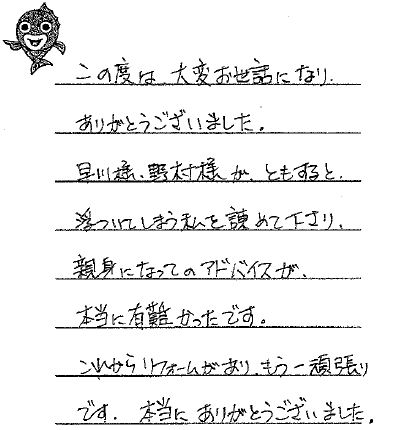 この度は、大変お世話になり.
ありがとうございました。
早川様、野村様が、ともすると、
浮ついてしまう私を諌めて下さり、
親身になってのアドバイスが、
本当に有難かったです。
これからリフォームがあり、もう一頑張り
です. 本当にありがとうございました.